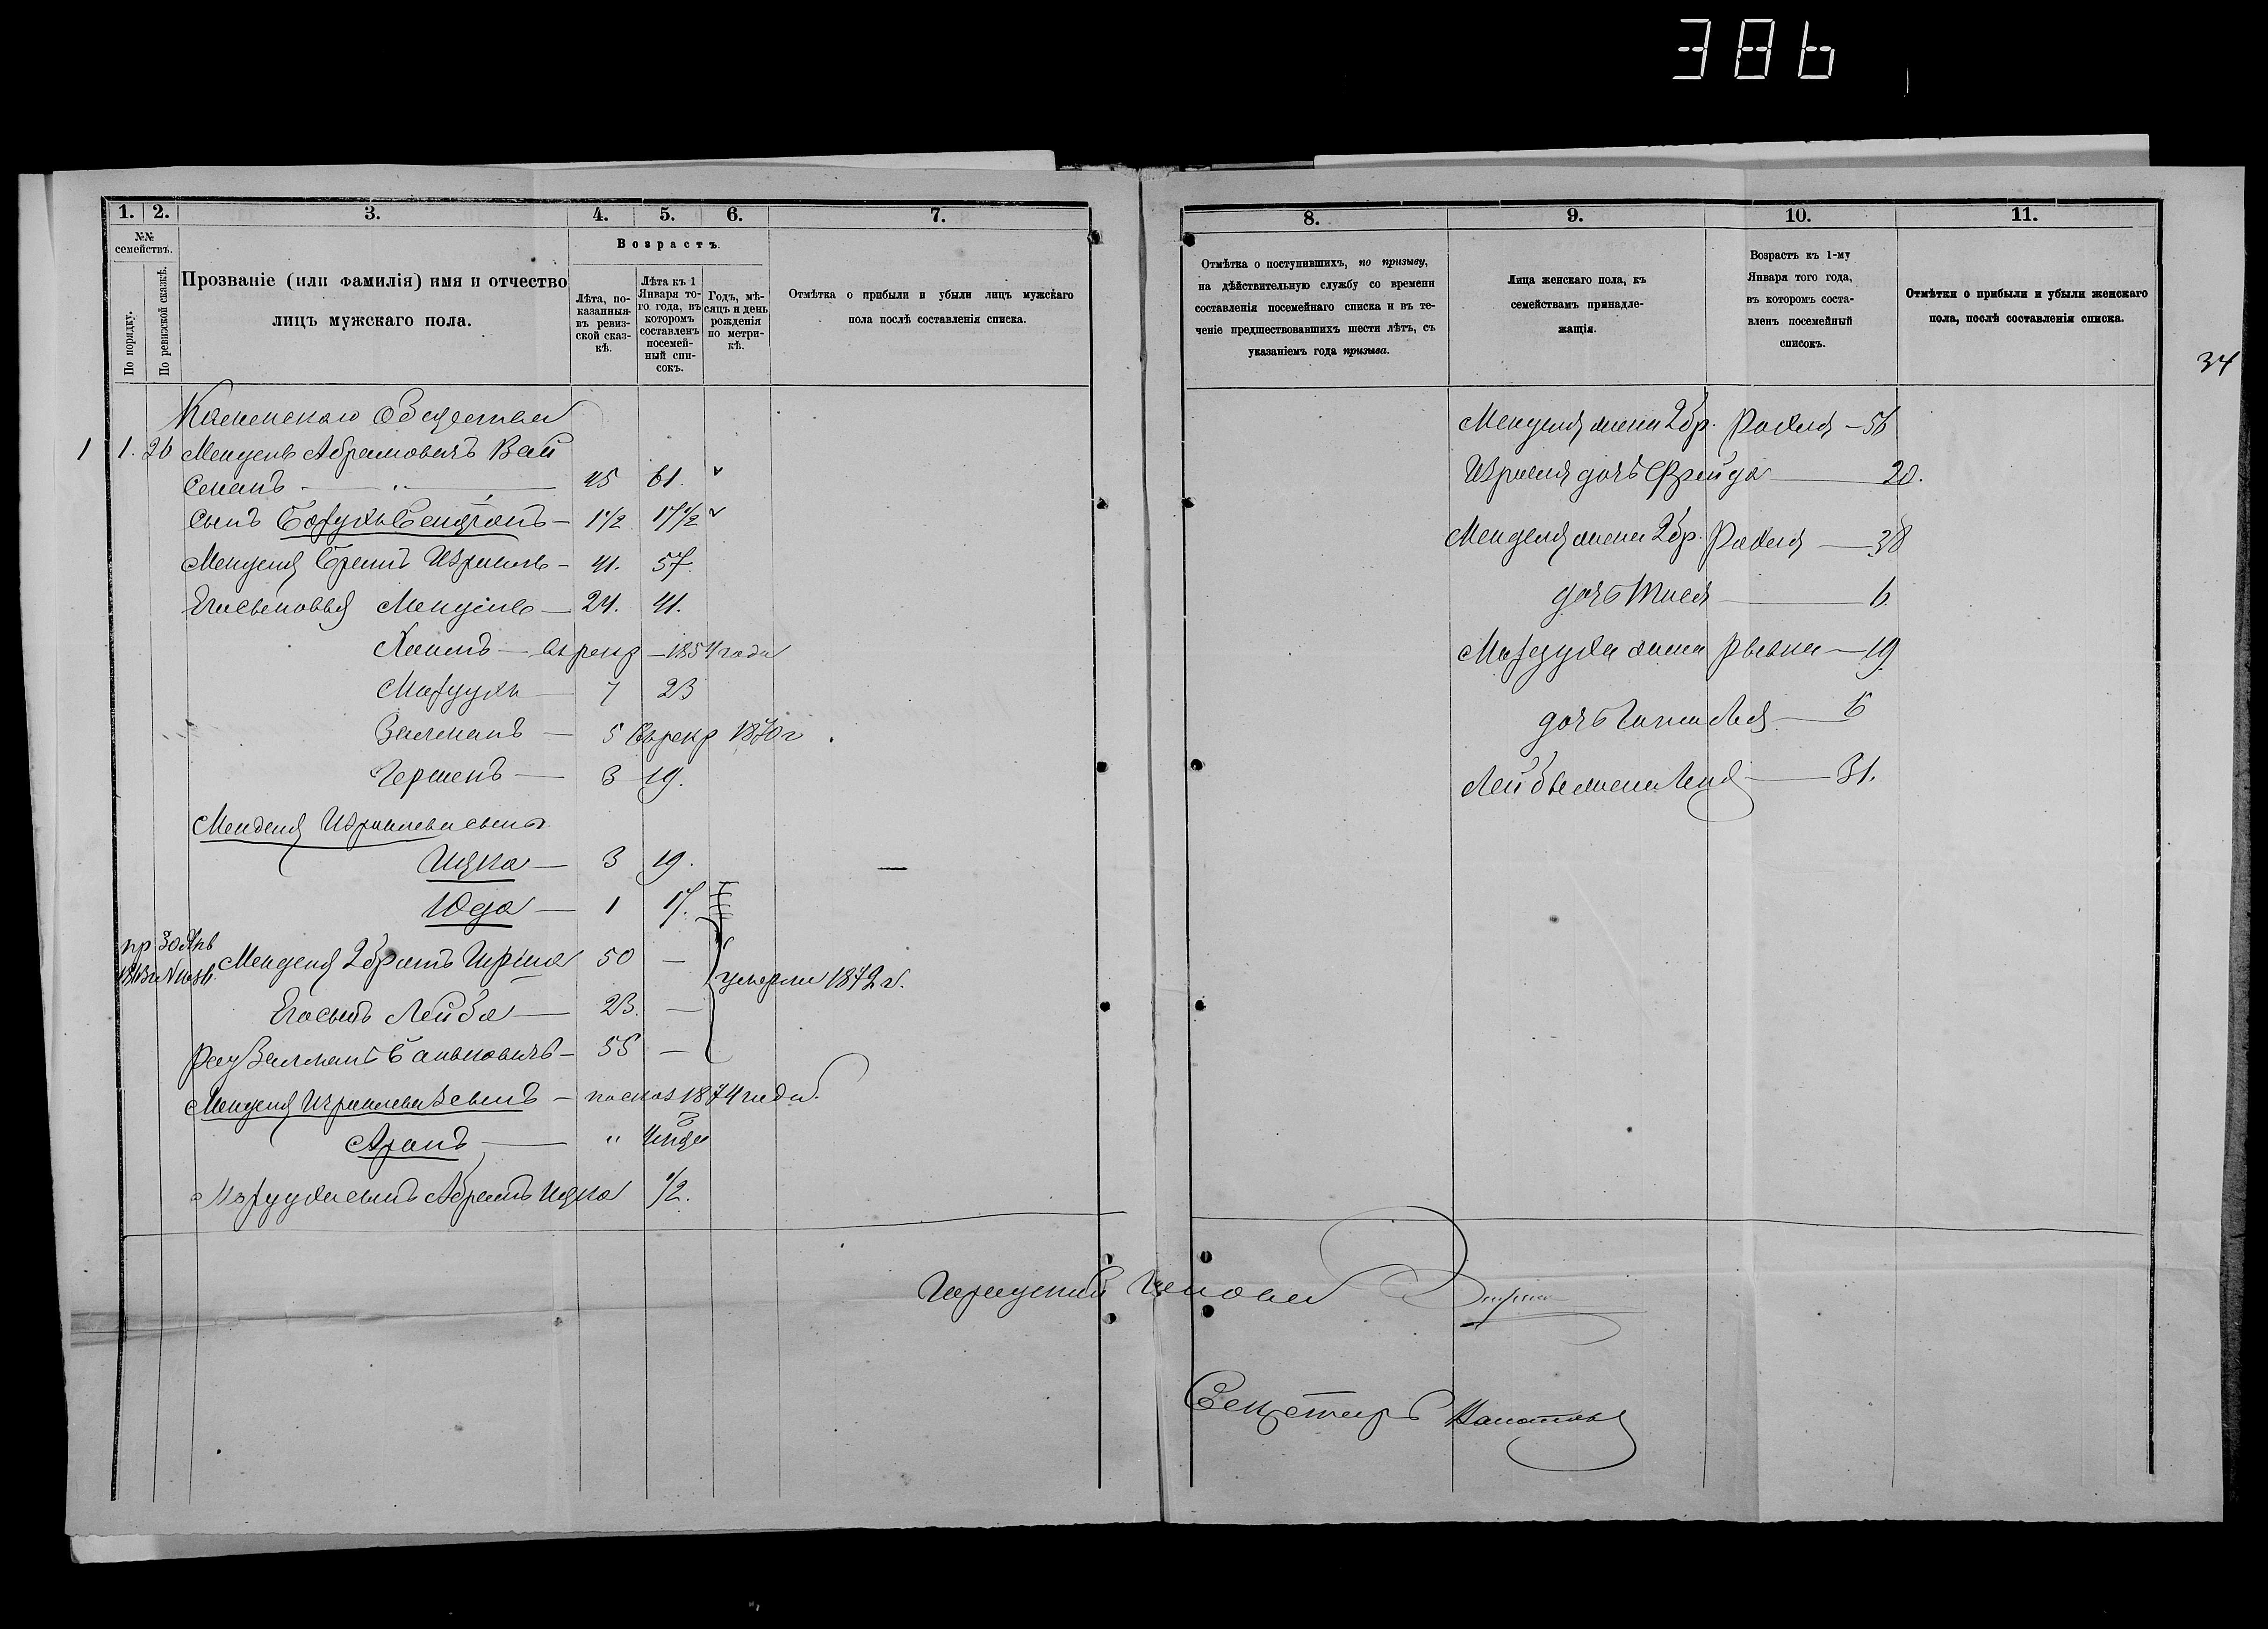 386
34
1. 2. 3. 4. 5. 6. 7.
№№ семействъ.
По порядку.
По ревизской сказкѣ.
Прозваніе (или фамилія) имя и отчество
лицъ мужскаго пола.
Возрастъ.
Лѣта, по-
казанныя
въ ревиз-
ской сказ-
кѣ.
Лѣта къ 1
Января то-
го года, въ
которомъ
составленъ
посемей-
ный спи-
сокъ.
Годъ, мѣ-
сяцъ и день
рожденія
по метри-
кѣ.
Отмѣтка о прибыли и убыли лицъ мужскаго
пола послѣ составленія списка.
Каменскаго Общества
1 1. 26 Мендель Абрамовичъ Вай
сманъ — 45 61.
Сынъ Борухъ Бенціонъ — 1 1/2 17 1/2
Менделя братъ Израиль — 41. 57.
Его сыновья Мендель — 24. 41.
Хаимъ — въ рекр — 1854 года
Мордухъ — 7 23
Залманъ — 5 въ рекр 1870 г.
Гершенъ — 3 19.
Менделя Израилева сыны
Ицка — 3 19.
Юда — 1 17.
Менделя 2 братъ 50 —
умерли 1872 г.
Его сынъ Лейба — 23. —
Залманъ 55 —
Менделя Израилева сынъ — по сказ 1874 года.
Аронъ — "
Мордуха сынъ Абрамъ Ицка 1/2.
8. 9. 10. 11.
Отмѣтка о поступившихъ, по призыву,
на дѣйствительную службу со времени
составленія посемейнаго списка и въ те-
ченіе предшествовавшихъ шести лѣтъ, съ
указаніемъ года призыва.
Лица женскаго пола, къ
семействамъ принадле-
жащія.
Возрастъ къ 1-му
Января того года,
въ которомъ соста-
вленъ посемейный
списокъ.
Отмѣтки о прибыли и убыли женскаго
пола, послѣ составленія списка.
Менделя жена 2 бр. Рахля — 56
Израиля дочь Фрейда — 20.
Менделя жена 2 бр. Рахля — 38
дочь — 6.
Мордуха жена Ривка — 19
дочь — 6
Лейбы жена Лея — 31.
Городской Голова
Секретарь